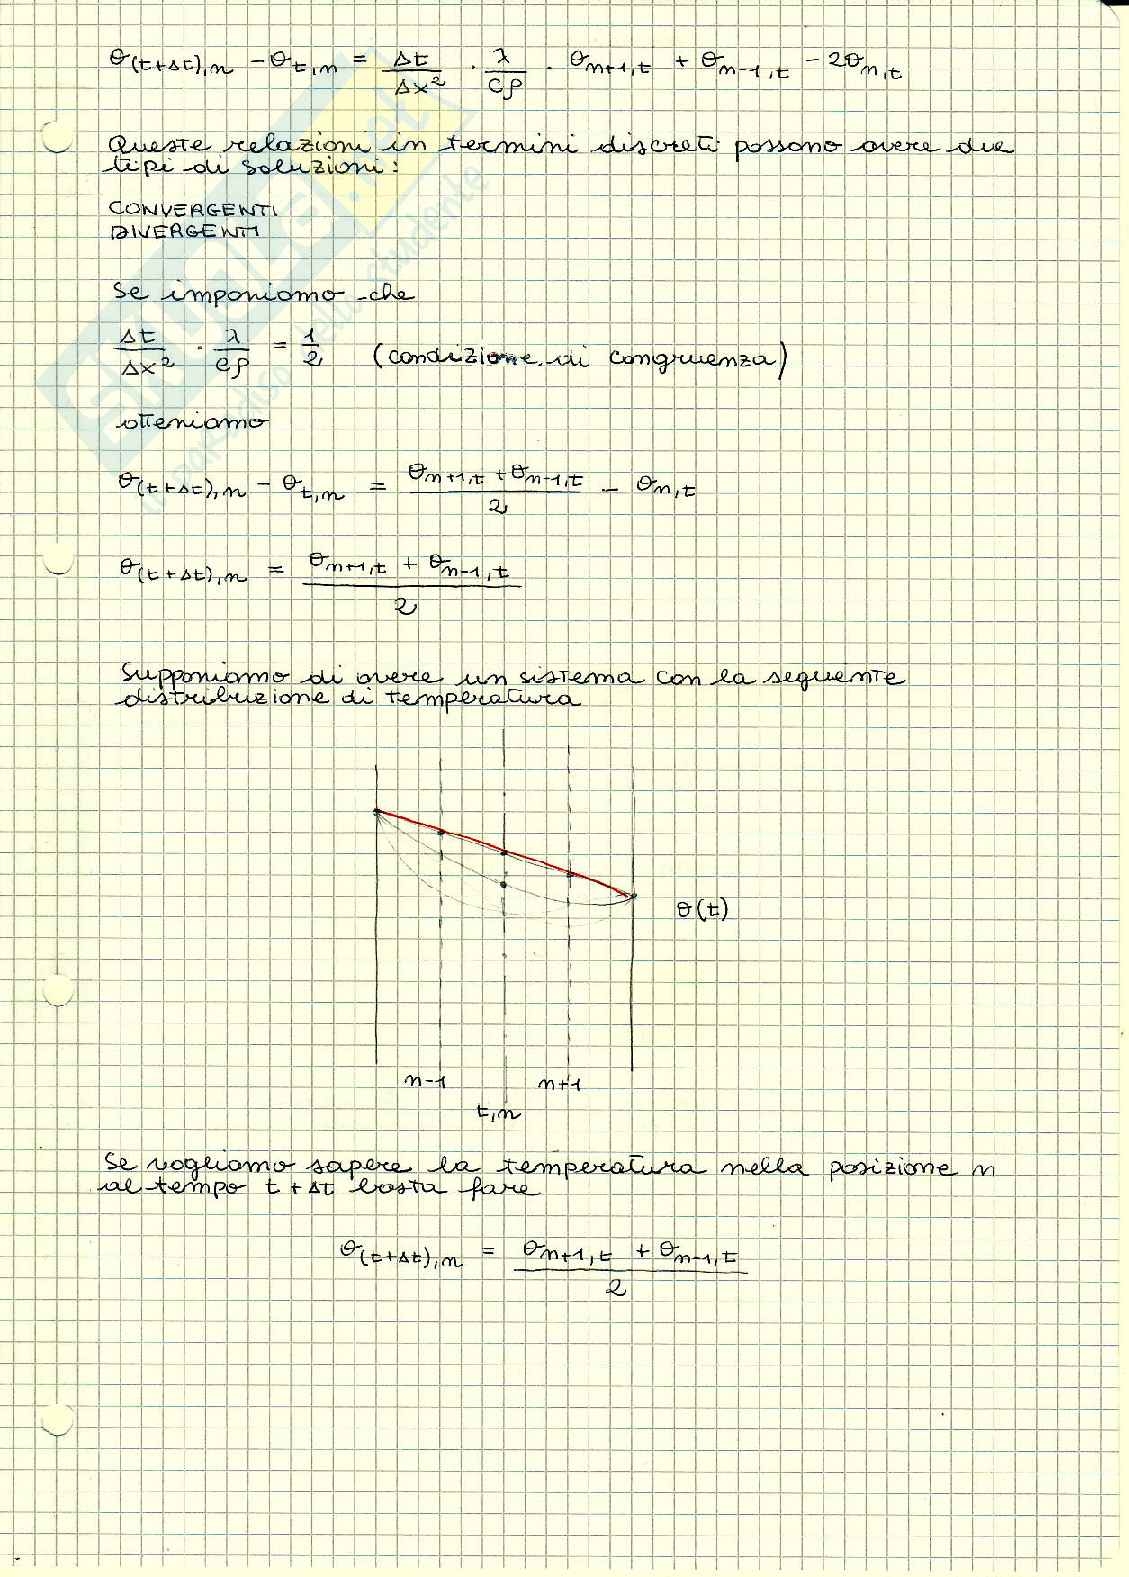 θ(t+Δt),n - θt,n = Δt/Δx² · λ/cρ · θn+1,t + θn-1,t - 2θn,t
Queste relazioni in termini discreti possono avere due
tipi di soluzioni:
CONVERGENTI
DIVERGENTI
Se imponiamo che
Δt/Δx² · λ/cρ = 1/2 (condizione di congruenza)
otteniamo
θ(t+Δt),n - θt,n = (θn+1,t + θn-1,t)/2 - θn,t
θ(t+Δt),n = (θn+1,t + θn-1,t)/2
Supponiamo di avere un sistema con la seguente
distribuzione di temperatura
θ(t)
n-1 n+1
t,n
Se vogliamo sapere la temperatura nella posizione n
al tempo t+Δt basta fare
θ(t+Δt),n = (θn+1,t + θn-1,t)/2